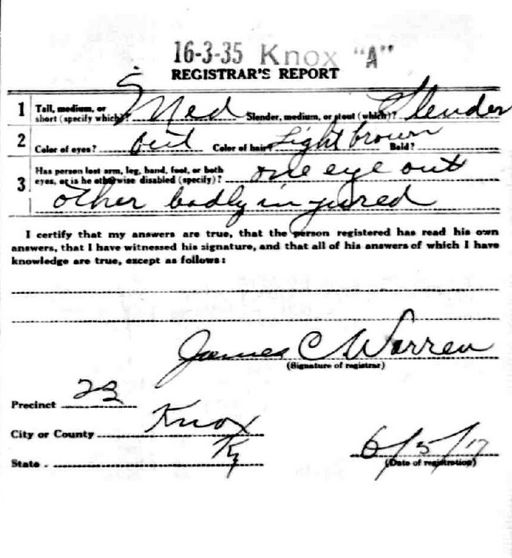 16-3-35 Knox "A"
REGISTRAR'S REPORT
1 Tall, medium, or short (specify which)? Med Slender, medium, or stout (which)? Slender
2 Color of eyes? out Color of hair? Light brown Bald?
3 Has person lost arm, leg, hand, foot, or both eyes, or is he otherwise disabled (specify)? one eye out
other badly injured
I certify that my answers are true, that the person registered has read his own
answers, that I have witnessed his signature, and that all of his answers of which I have
knowledge are true, except as follows:
James C Warren
(Signature of registrar)
Precinct 22
City or County Knox
State Ky
6/5/17
(Date of registration)